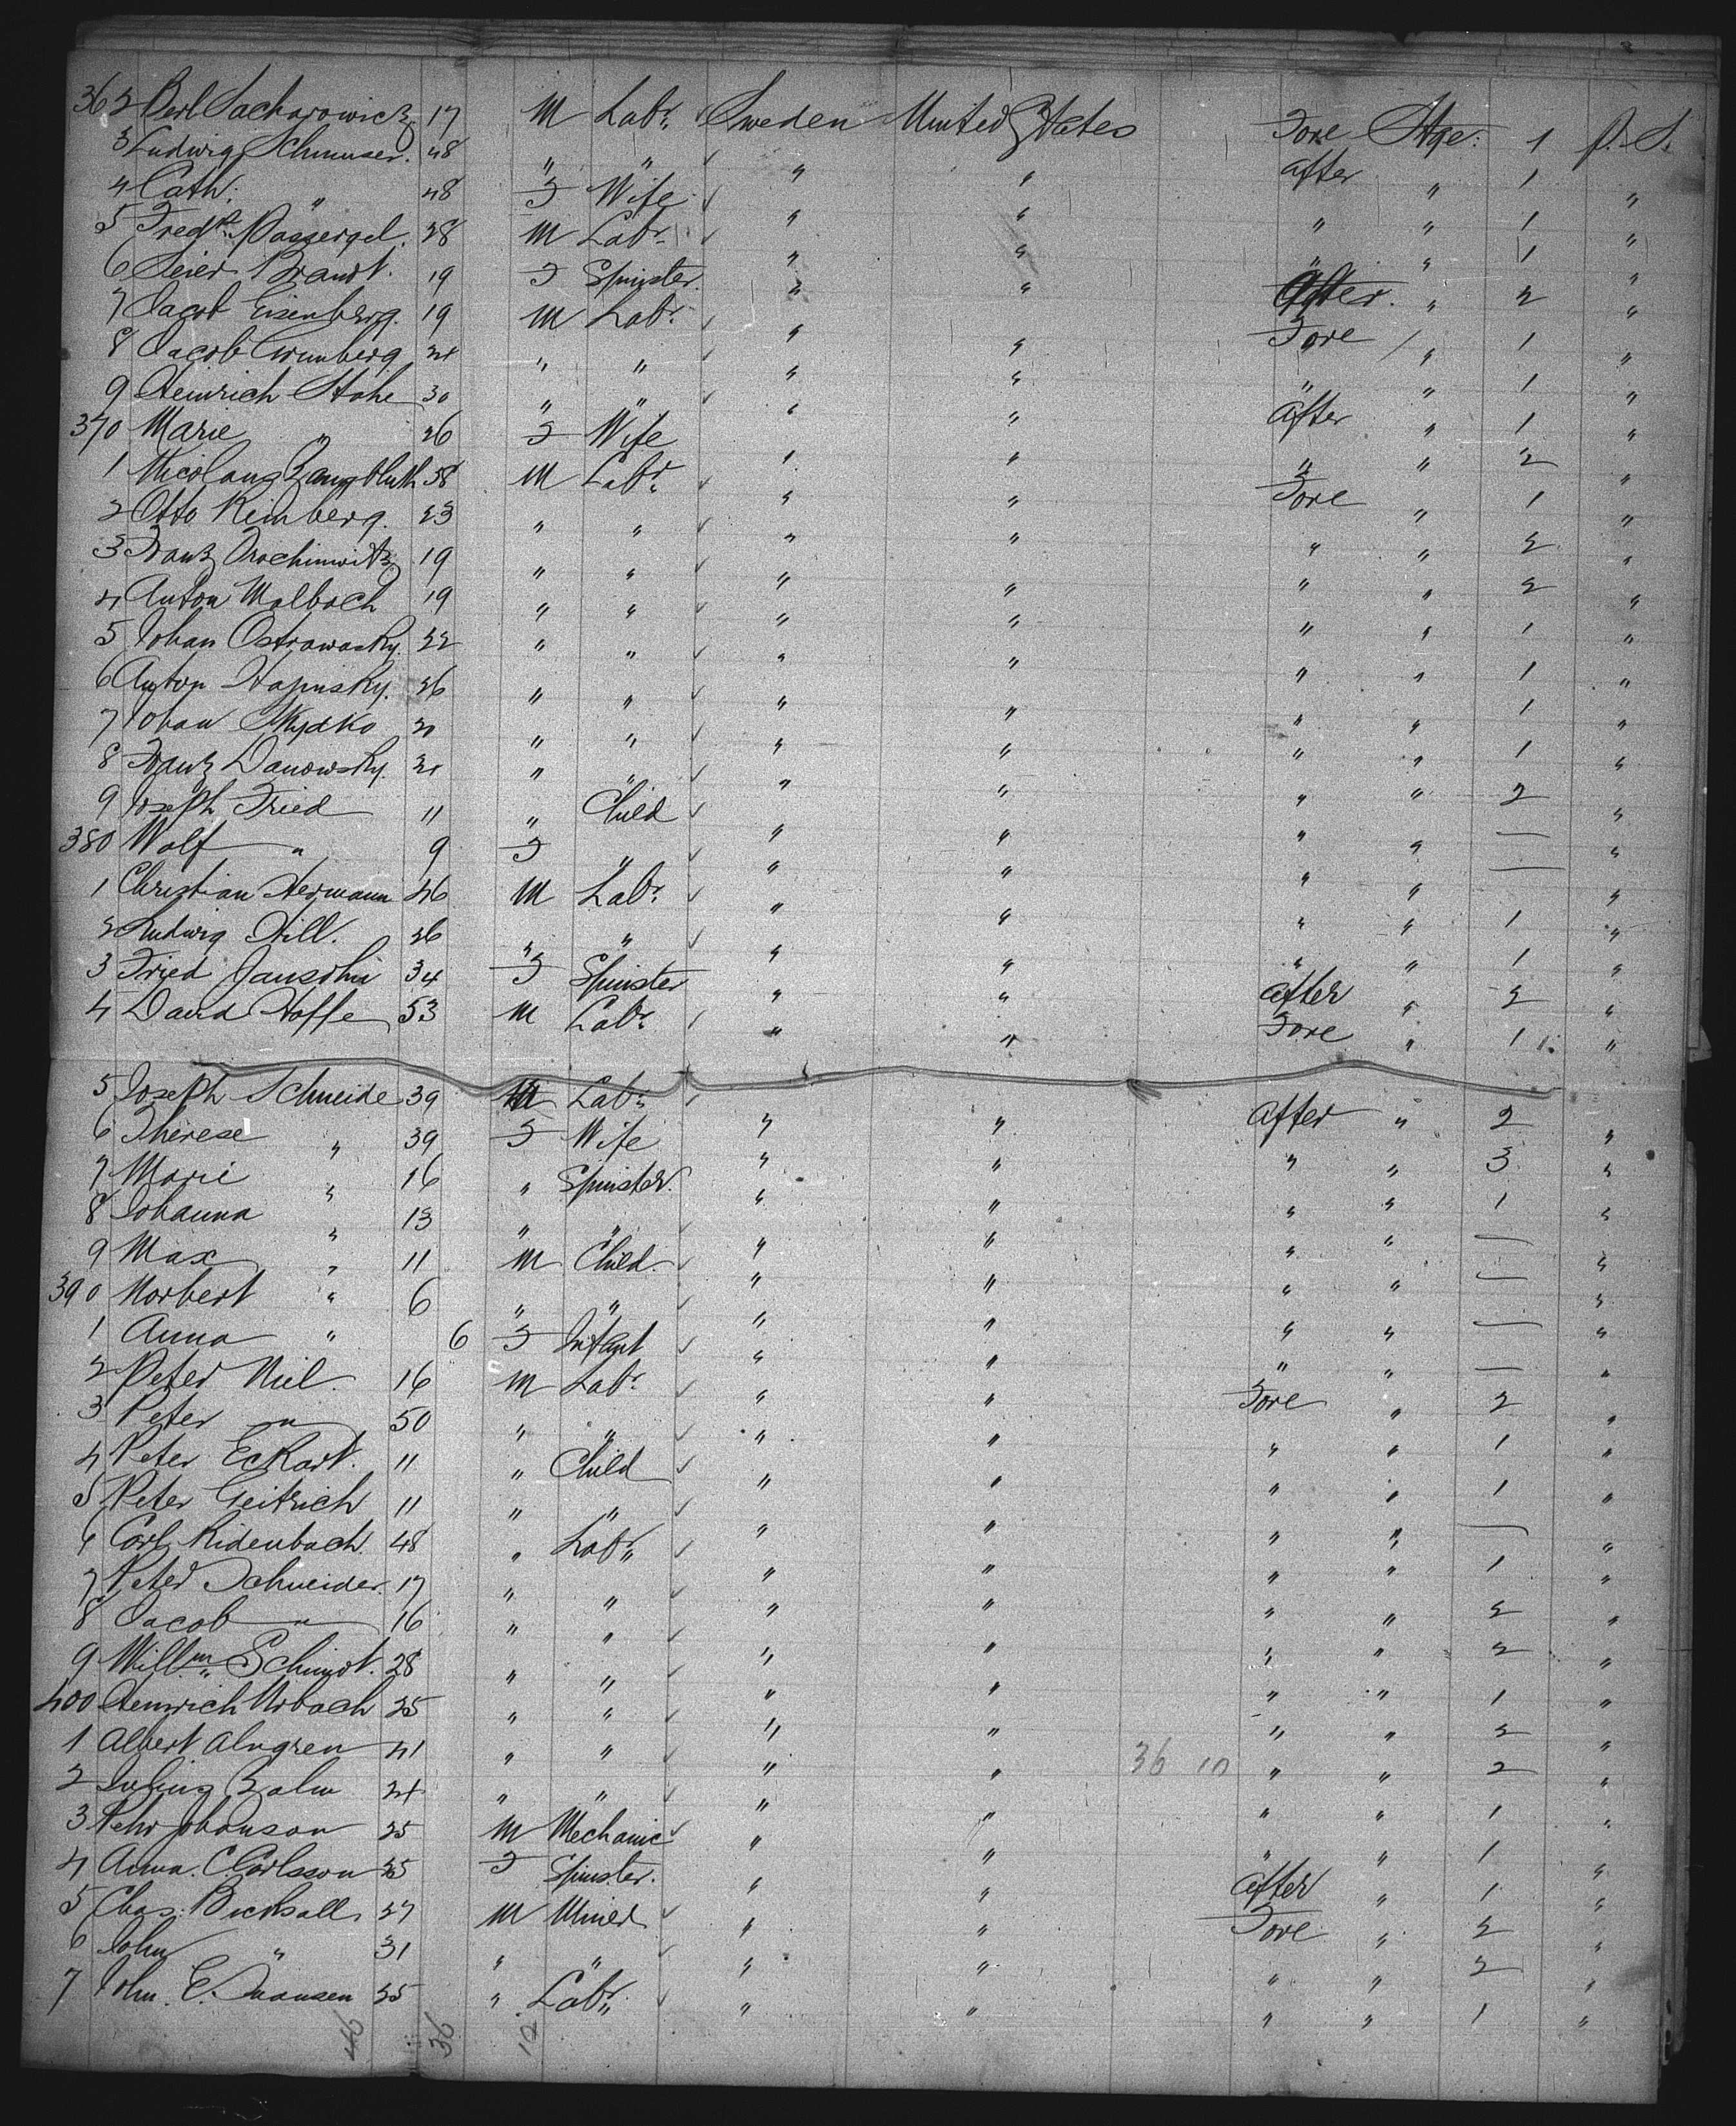 362 Berl Sacharowicz 17 M Labr. Sweden United States Fore Stge. 1 P. S.
3 Ludwig 48 " " " " after " 1 "
4 Cath. " 48 F Wife " " " " 1 "
5 Fredk. Passergel. 28 M Labr. " " " " 1 "
6 Leier Brandt. 19 F Spinster. " " after. " 2 "
7 Jacob Eisenberg. 19 M Labr. " " Fore " 1 "
8 Jacob Grunberg 24 " " " " " " 1 "
9 Heinrich Stohe 30 " " " " after " 1 "
370 Marie " 26 F Wife " " " " 2 "
1 Nicolaus 58 M Labr. " " Fore " 1 "
2 Otto Reinberg. 23 " " " " " " 2 "
3 Franz 19 " " " " " " 2 "
4 Anton Malboch 19 " " " " " " 1 "
5 Johan Ostrowasky. 22 " " " " " " 1 "
6 Anton Stapinsky. 26 " " " " " " 1 "
7 Johan 20 " " " " " " 1 "
8 Franz Danowsky. 21 " " " " " " 2 "
9 Joseph Fried 11 " Child " " " " — "
380 Wolf " 9 F " " " " " — "
1 Christian Hermann 46 M Labr. " " " " 1 "
2 Ludwig Hill. 26 " " " " " " 1 "
3 Fried Jansohn 34 F Spinster " " after " 2 "
4 David Hoffe 53 M Labr. " " Fore " 1 "
5 Joseph Schneide 39 M Labr. " " after " 2 "
6 Therese " 39 F Wife " " " " 3 "
7 Marie " 16 " Spinster. " " " " 1 "
8 Johanna " 13 " " " " " " — "
9 Max " 11 M Child. " " " " — "
390 Norbert " 6 " " " " " " — "
1 Anna " 6 F Infant " " " " — "
2 Peter Niel. 16 M Labr. " " Fore " 2 "
3 Peter " 50 " " " " " " 1 "
4 Peter Eckart. 11 " Child " " " " 1 "
5 Peter Geitrich 11 " " " " " " — "
6 Carl Ridenbach. 48 " Labr. " " " " 1 "
7 Peter Schneider. 17 " " " " " " 2 "
8 Jacob " 16 " " " " " " 2 "
9 Willm. Schmidt. 28 " " " " " " 1 "
400 Heinrich Urbach 25 " " " " " " 2 "
1 Albert Alngren 41 " " " " 36 10 " " 2 "
2 Julius Balm 24 " " " " " " 1 "
3 Pehr Johanson 25 M Mechanic " " " " 1 "
4 Anna. C. Carlsson 25 F Spinster. " " after " 1 "
5 Chas. Bicksall 27 M Miner " " Fore " 2 "
6 John " 31 " " " " " " 2 "
7 John. E. Swansen 25 " Labr. " " " " 1 "
46 36 10